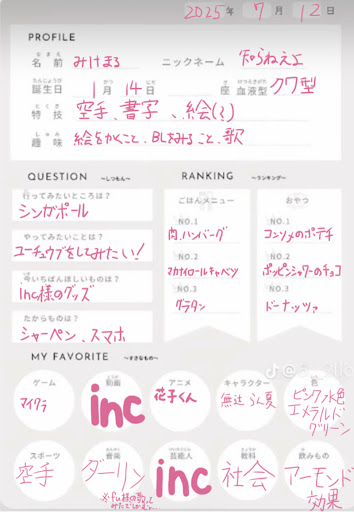 2025年 7月 12日
PROFILE
なまえ
名前 みけまる ニックネーム 知らねえよ
たんじょうび がつ にち けつえきがた
誕生日 1月 14日 座 血液型 クワ型
とくぎ
特技 空手、書字、絵(?)
しゅみ
趣味 絵をかくこと、BLをみること、歌
QUESTION ~しつもん~
行ってみたいところは?
シンガポール
やってみたいことは?
ユーチュウブをしてみたい!
今いちばんほしいものは?
Inc様のグッズ
たからものは?
シャーペン、スマホ
RANKING ~ランキング~
ごはんメニュー
NO.1
肉、ハンバーグ
NO.2
マカナイロールキャベツ
NO.3
グラタン
おやつ
NO.1
コンソメのポテチ
NO.2
ポッピンシャワーのチョコ
NO.3
ドーナッツァ
MY FAVORITE ~すきなもの~
ゲーム
マイクラ
動画
inc
アニメ
花子くん
キャラクター
色
ピンク、水色
エメラルド
グリーン
スポーツ
空手
音楽
ダーリン
芸能人
inc
教科
社会
飲みもの
アーモンド
効果